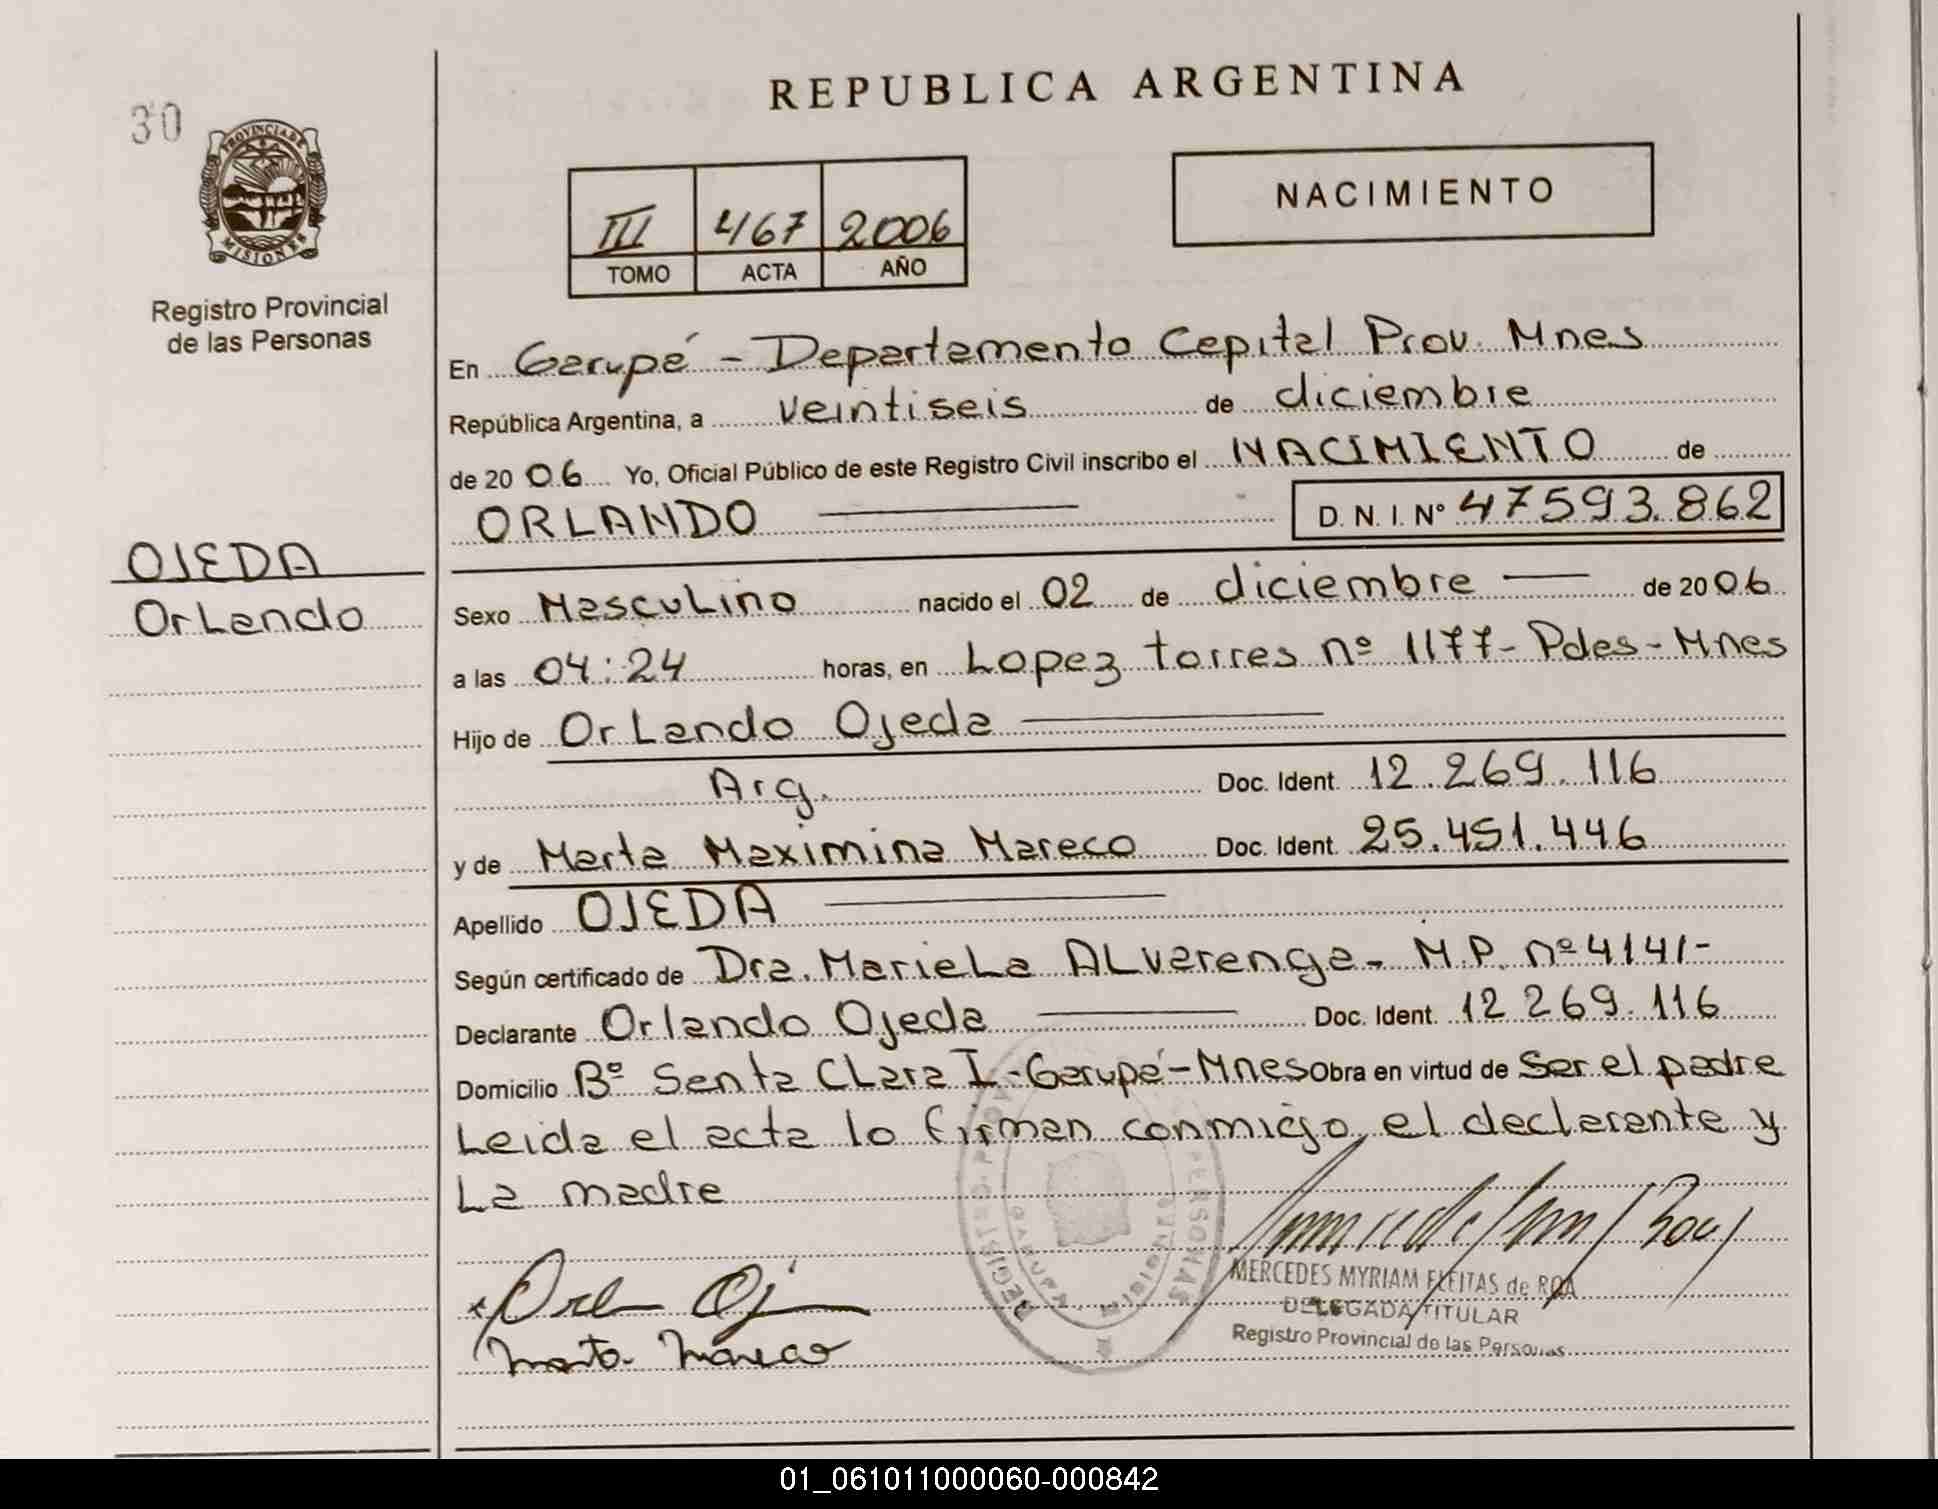 REPUBLICA ARGENTINA
30
PROVINCIA DE
MISIONES
Registro Provincial
de las Personas
III 467 2006
TOMO ACTA AÑO
NACIMIENTO
En Garupé - Departamento Capital Prov. Mnes
República Argentina, a veintiseis de diciembre
de 2006 Yo, Oficial Público de este Registro Civil inscribo el NACIMIENTO de
ORLANDO D. N. I. Nº 47593.862
OJEDA
Orlando
Sexo Masculino nacido el 02 de diciembre de 2006
a las 04:24 horas, en Lopez torres nº 1177- Pdas - Mnes
Hijo de Orlando Ojeda
Arg. Doc. Ident. 12.269.116
y de Marta Maximina Mareco Doc. Ident. 25.451.446
Apellido OJEDA
Según certificado de Dra. Mariela Alvarenga - M.P. nº 4141-
Declarante Orlando Ojeda Doc. Ident. 12 269.116
Domicilio Bº Santa Clara I - Garupé - Mnes Obra en virtud de Ser el padre
Leida el acta lo firman conmigo, el declarante y
La madre
MERCEDES MYRIAM FLEITAS de ROA
DELEGADA TITULAR
Registro Provincial de las Personas
Marta Mareco
01_061011000060-000842